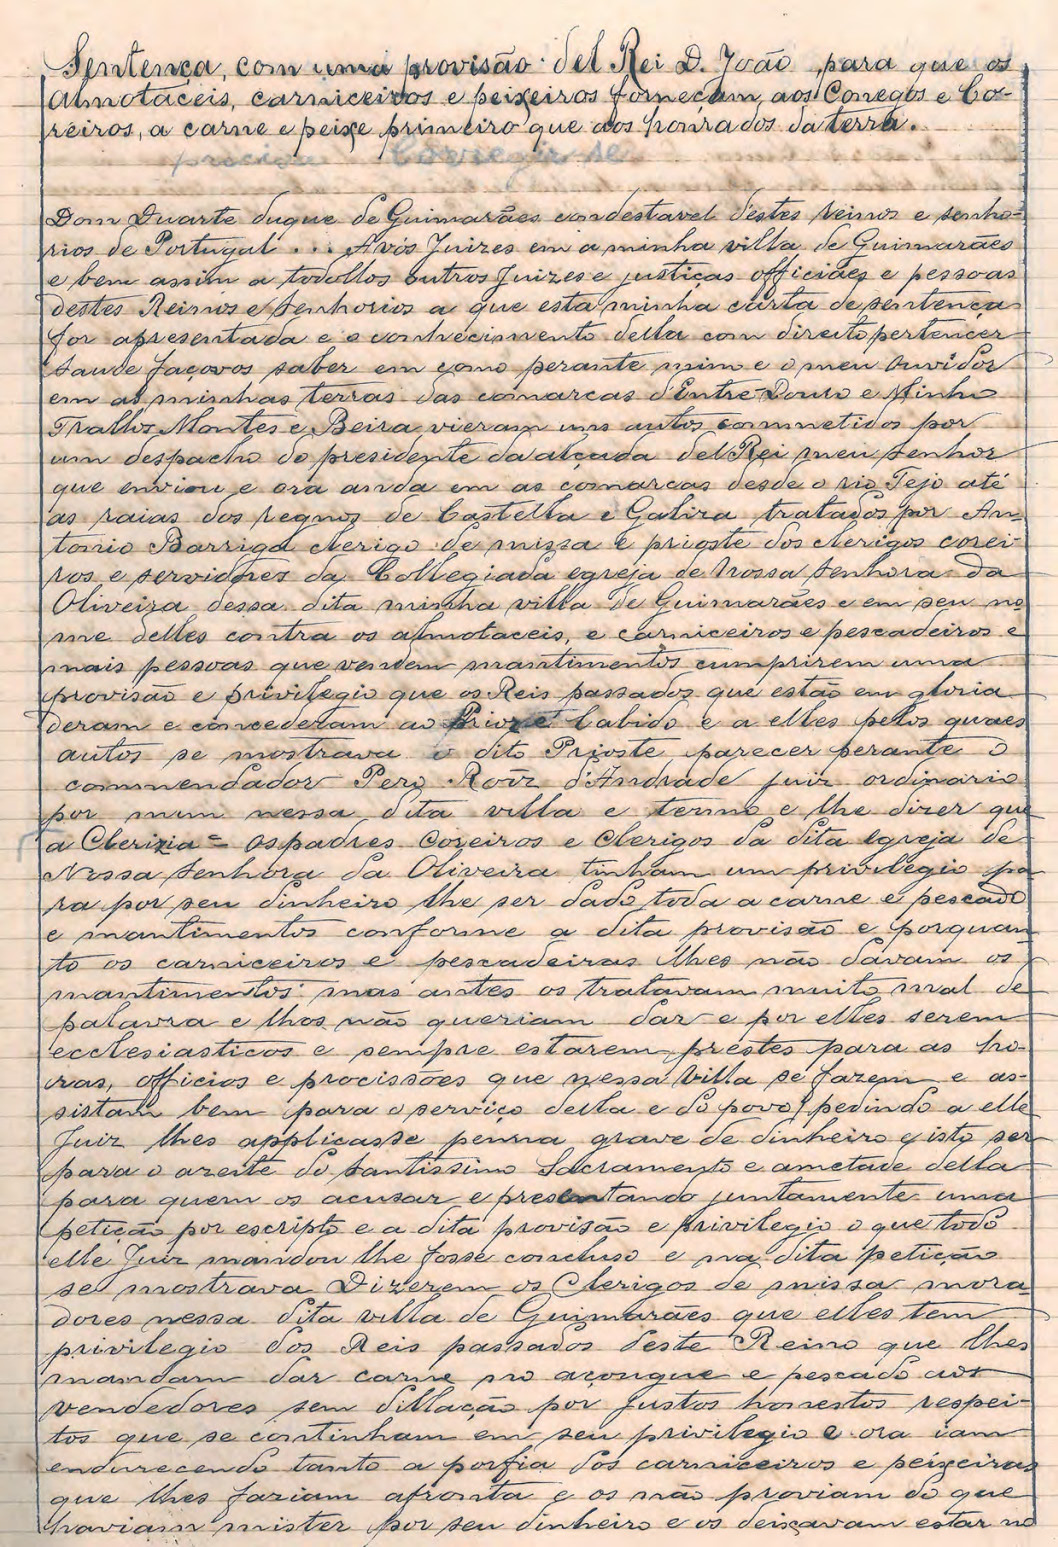 Sentença, com uma provisão del Rei D. João, para que os
almotaceis, carniceiros e peixeiros forneçam, aos Conegos e Co-
reiros, a carne e peixe primeiro que aos honrados da terra.
precisa Corregir-se
Dom Duarte duque de Guimarães condestavel d'estes reinos e senho-
rios de Portugal ... A vós Juizes em a minha villa de Guimarães
e bem assim a todollos outros Juizes e justiças officiaes e pessoas
destes Reinos e Senhorios a que esta minha carta de sentença
for apresentada e o conhecimento della com direito pertencer
Saude façovos saber em como perante mim e o meu Ouvidor
em as minhas terras das comarcas d'Entre Douro e Minho
Trallos Montes e Beira vieram uns autos commetidos por
um despacho do presidente da alçada del Rei meu Senhor
que enviou e ora anda em as comarcas desde o rio Tejo até
as raias dos regnos de Castella e Galiza tratados por An-
tonio Barriga clerigo de missa e prioste dos clerigos corei-
ros e servidores da Collegiada egreja de Nossa Senhora da
Oliveira dessa dita minha villa de Guimarães e em seu no-
me delles contra os almotaceis, e carniceiros e pescadeiros e
mais pessoas que vendem mantimentos cumprirem uma
provisão e privilegio que os Reis passados que estão em gloria
deram e concederam ao Prior e Cabido e a elles pelos quaes
autos se mostrava o dito Prioste parecer perante o
commendador Pero Roiz d'Andrade juiz ordinario
por mim nessa dita villa e termo e lhe dizer que
a Clerizia = os padres Coreiros e Clerigos da dita Egreja de
Nossa Senhora da Oliveira tinham um privilegio pa
ra por seu dinheiro lhe ser dado toda a carne e pescado
e mantimentos conforme a dita provisão e porquan
to os carniceiros e pescadeiras lhes não davam os
mantimentos mas antes os tratavam muito mal de
palavra e lhos não queriam dar e por elles serem
ecclesiasticos e sempre estarem prestes para as ho-
ras, officios e procissões que nessa Villa se fazem e as-
sistam bem para o serviço della e do povo, pedindo a elle
Juiz lhes applicasse penna grave de dinheiro e isto ser
para o azeite do Santissimo Sacramento e ametade della
para quem os acusar e presentando juntamente uma
petição por escripto e a dita provisão e privilegio o que todo
elle Juiz mandou lhe fosse concluso e na dita petição
se mostrava Dizerem os Clerigos de missa mora
dores nessa dita villa de Guimarães que elles tem
privilegio dos Reis passados deste Reino que lhes
mandam dar carne no açougue e pescado aos
vendedores sem dillação por justos honestos respei-
tos que se continham em seu privilegio e ora iam
endurecendo tanto a porfia dos carniceiros e peixeiras
que lhes faziam afronta e os não proviam do que
haviam mister por seu dinheiro e os deixavam estar no